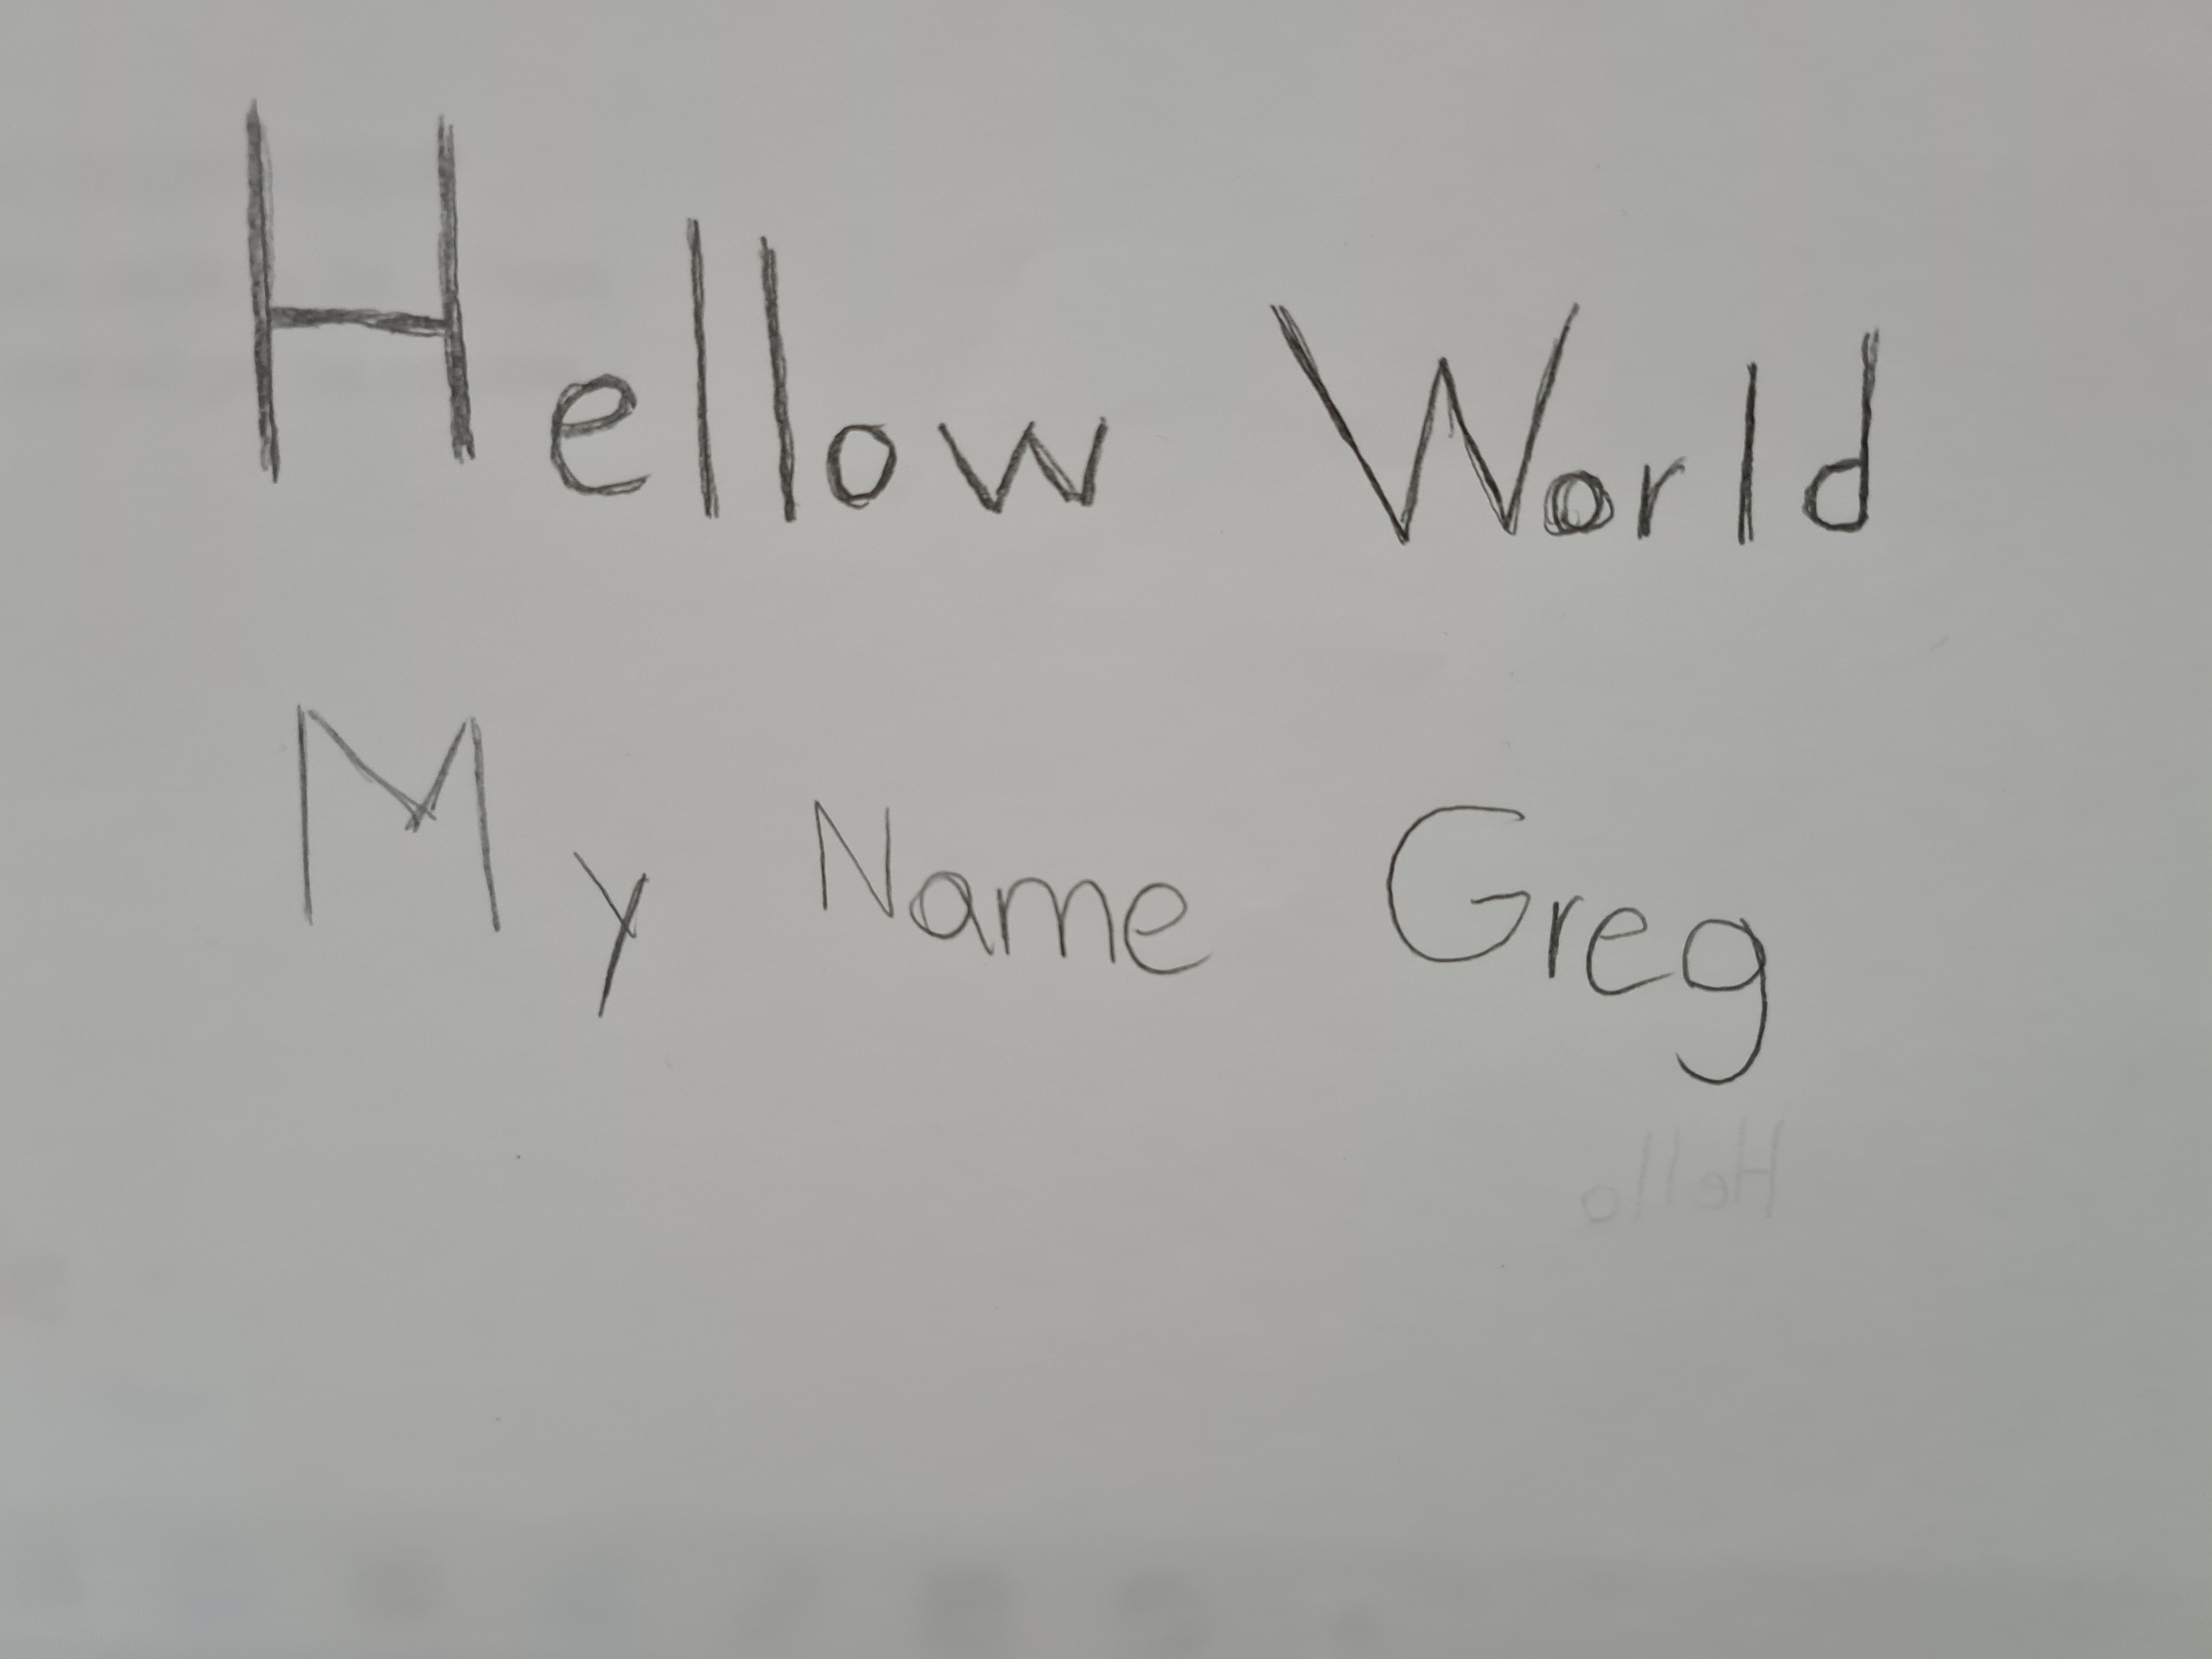 Hellow World
My Name Greg
Hello